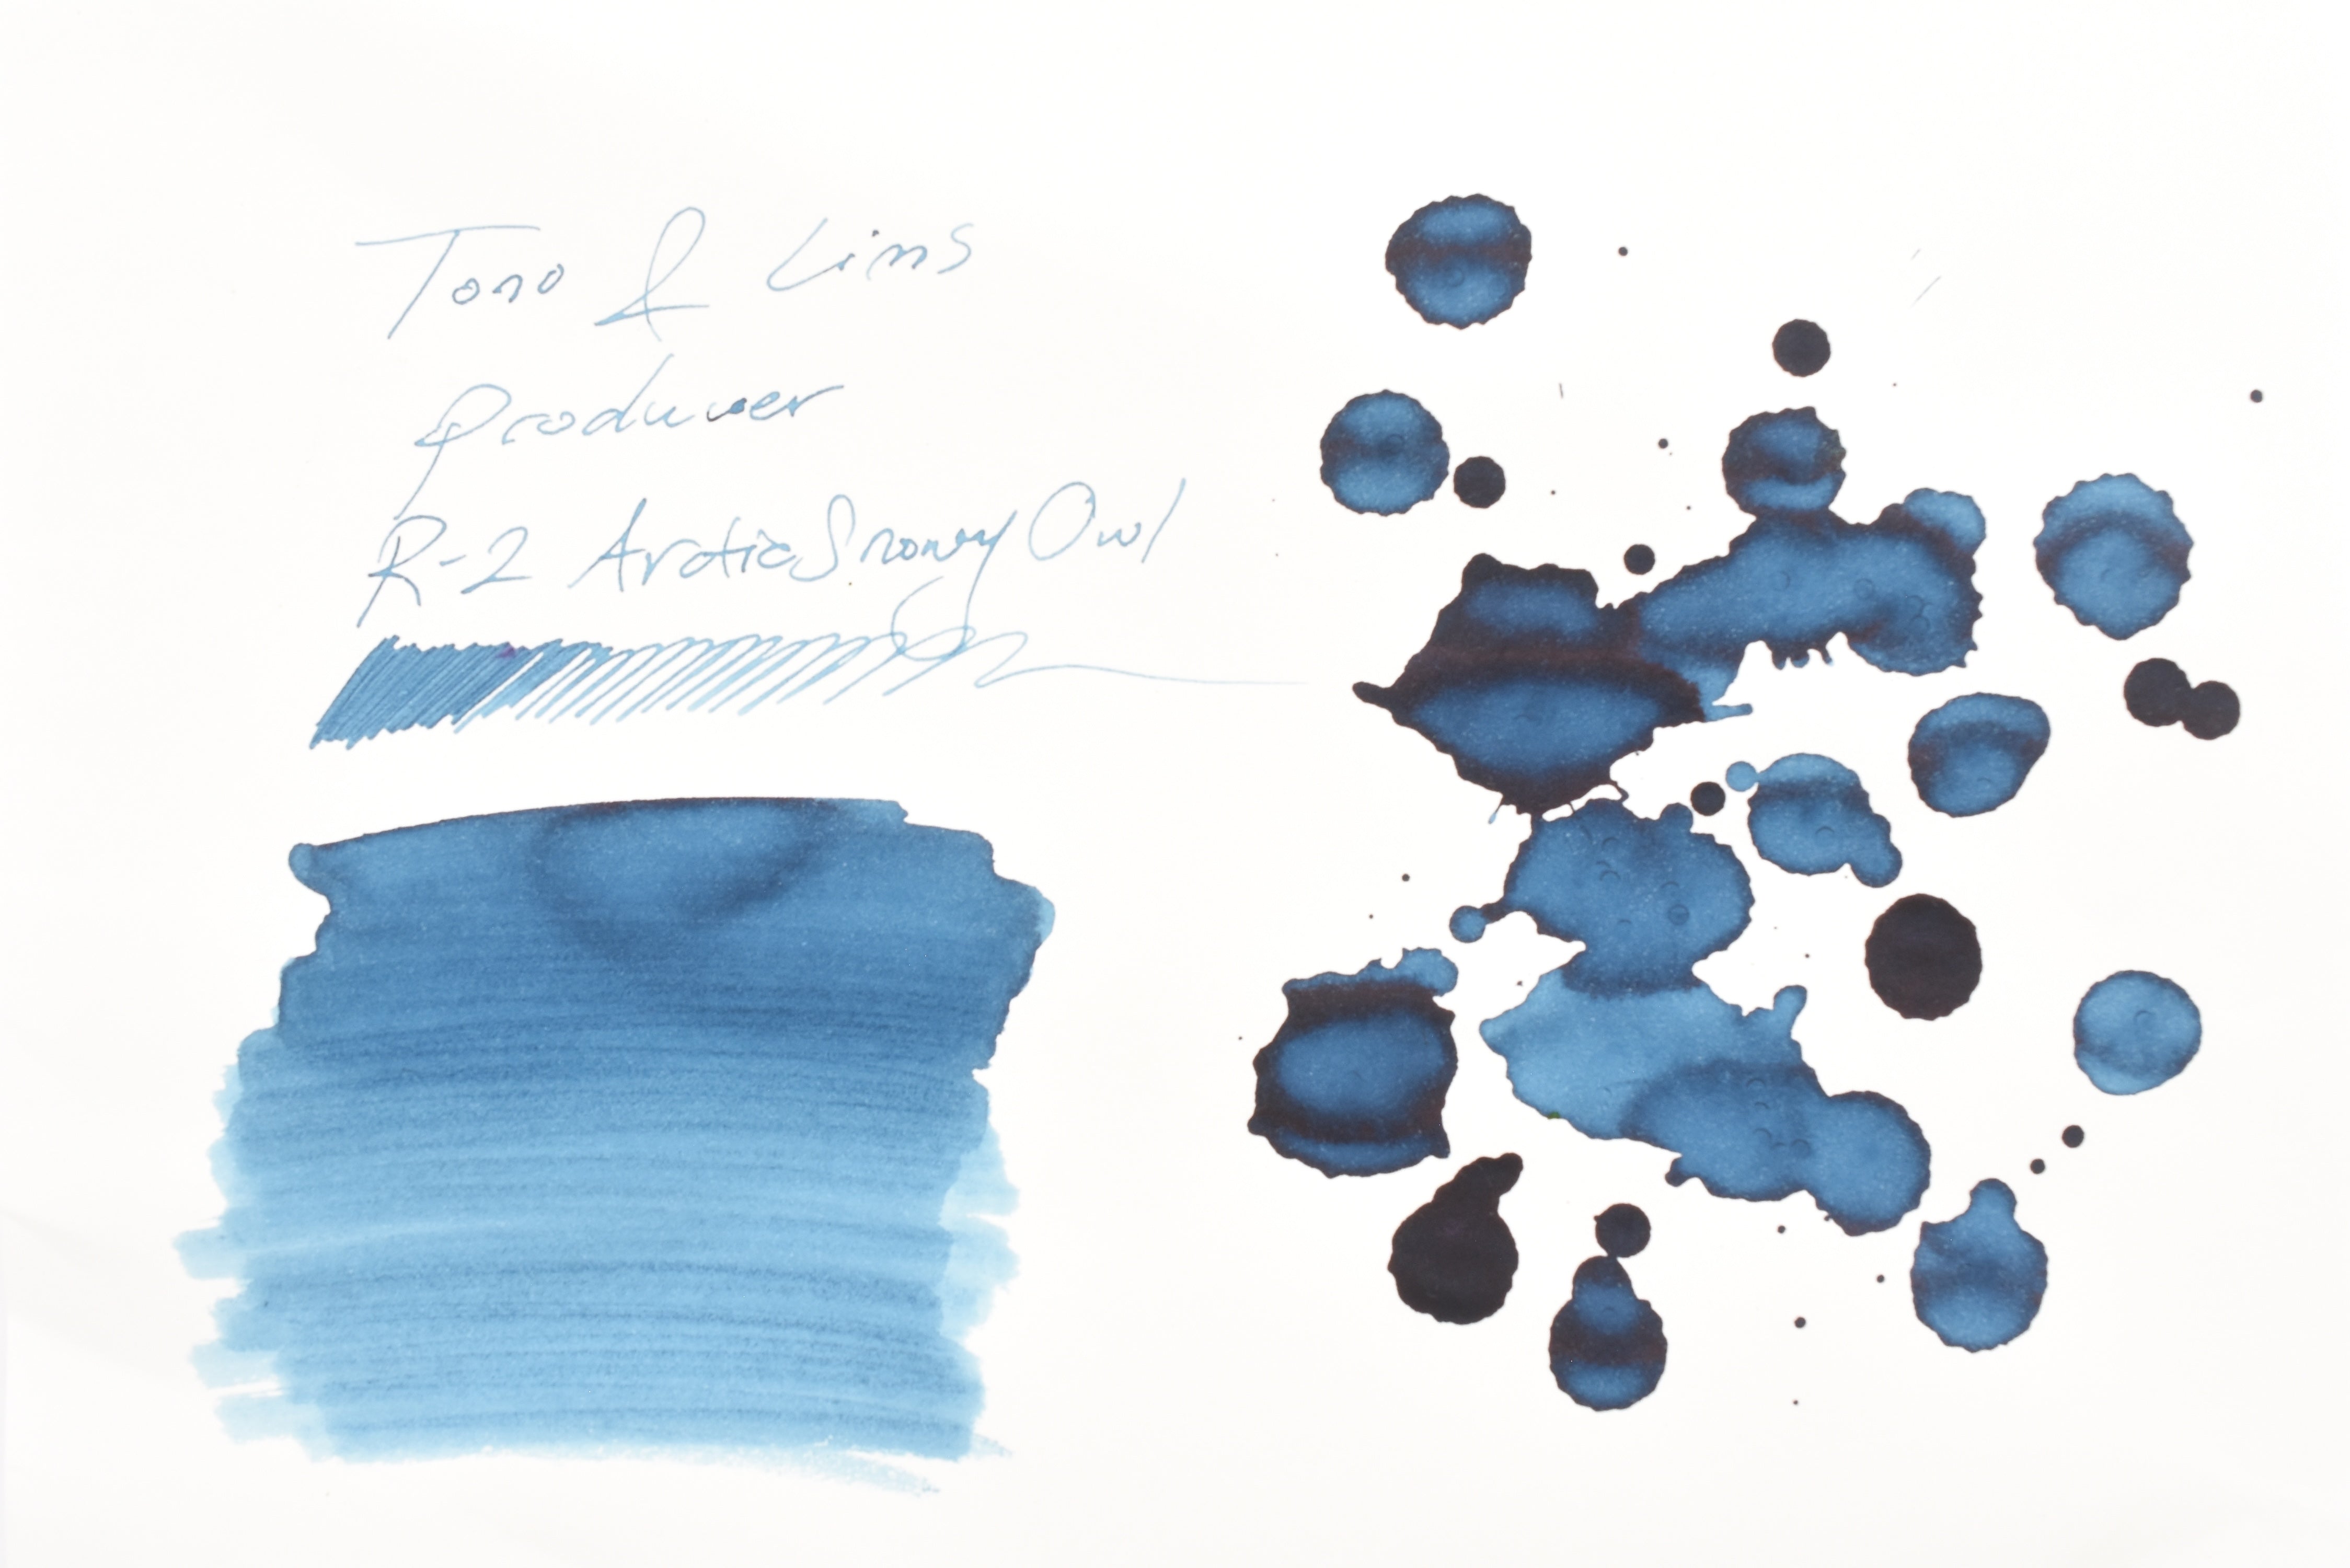 Tono & Lims
Producer
R-2 Arctic Snowy Owl